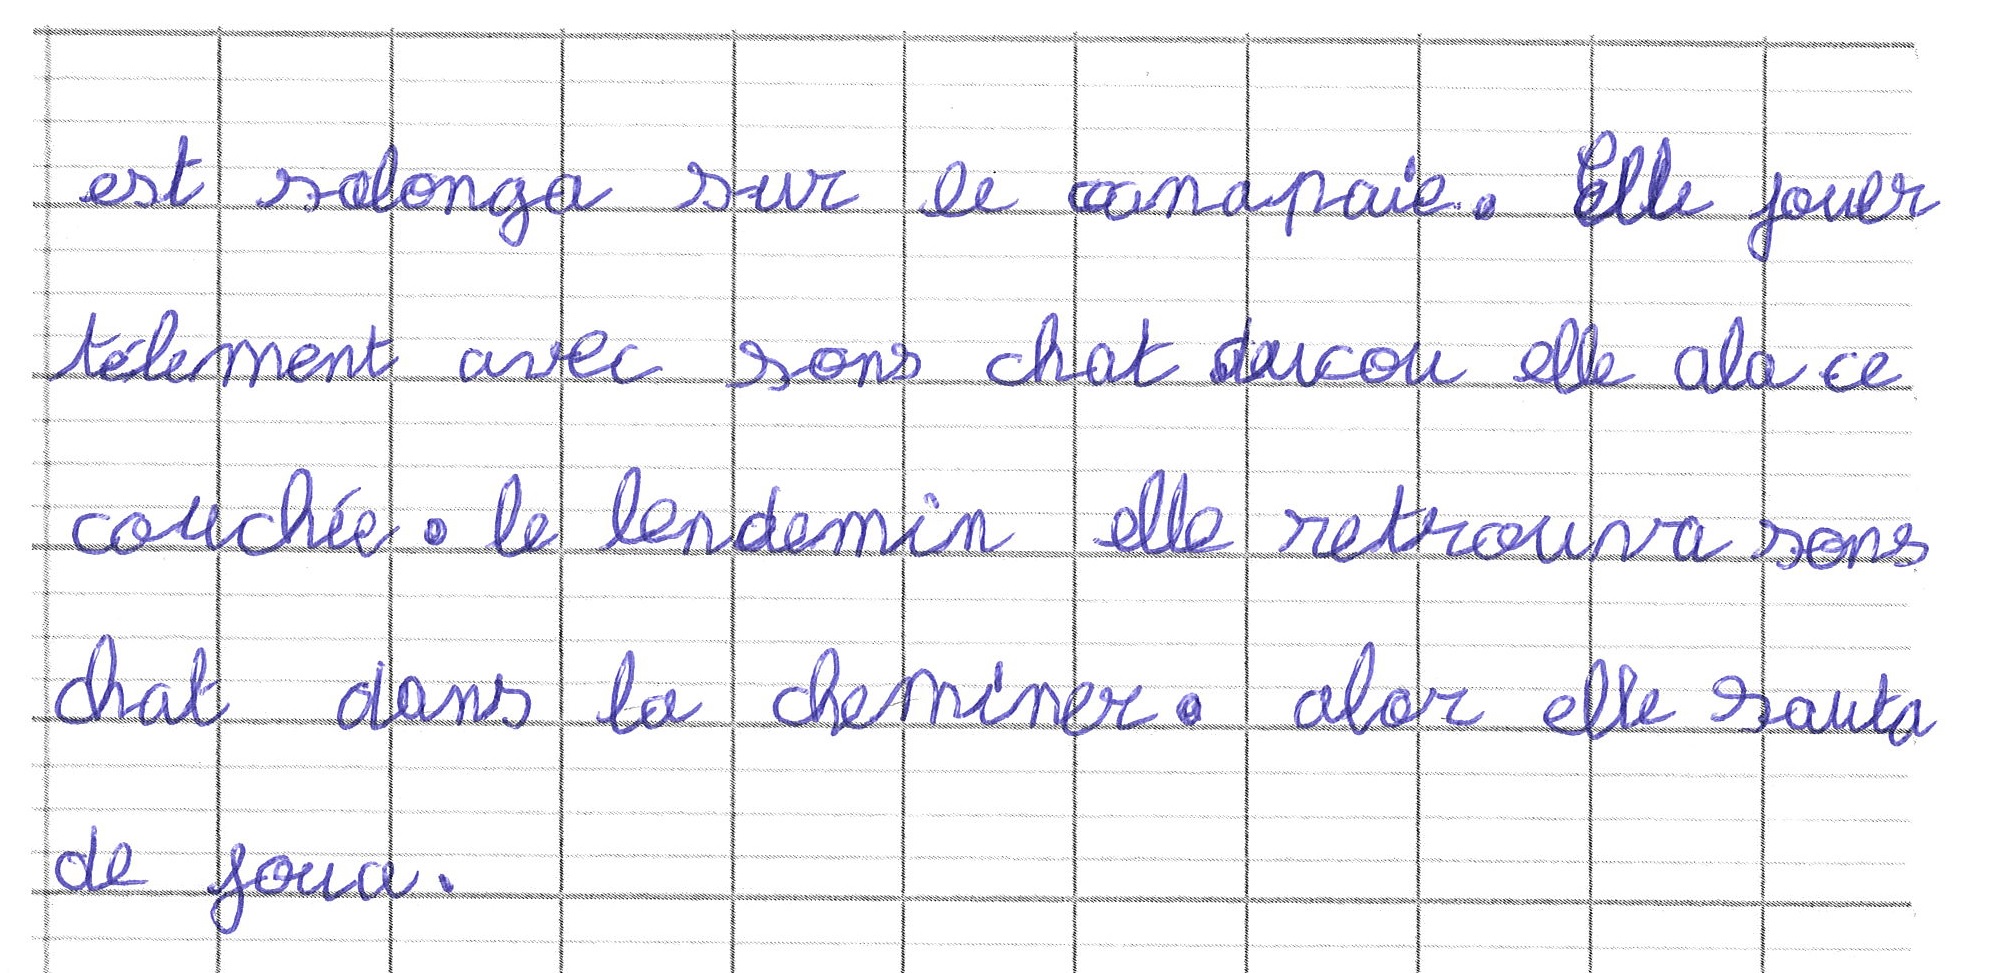 est salonga sur le canapaie. Elle jouer
télement avec sons chat ducou elle ala ce
couchée. le lendemin elle retrouva sons
chat dans la cheminer. alor elle sauta
de joua.